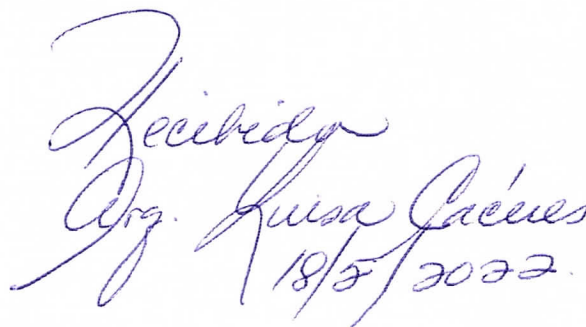 Recibido
Arq. Luisa Cáceres
18/5/2022.